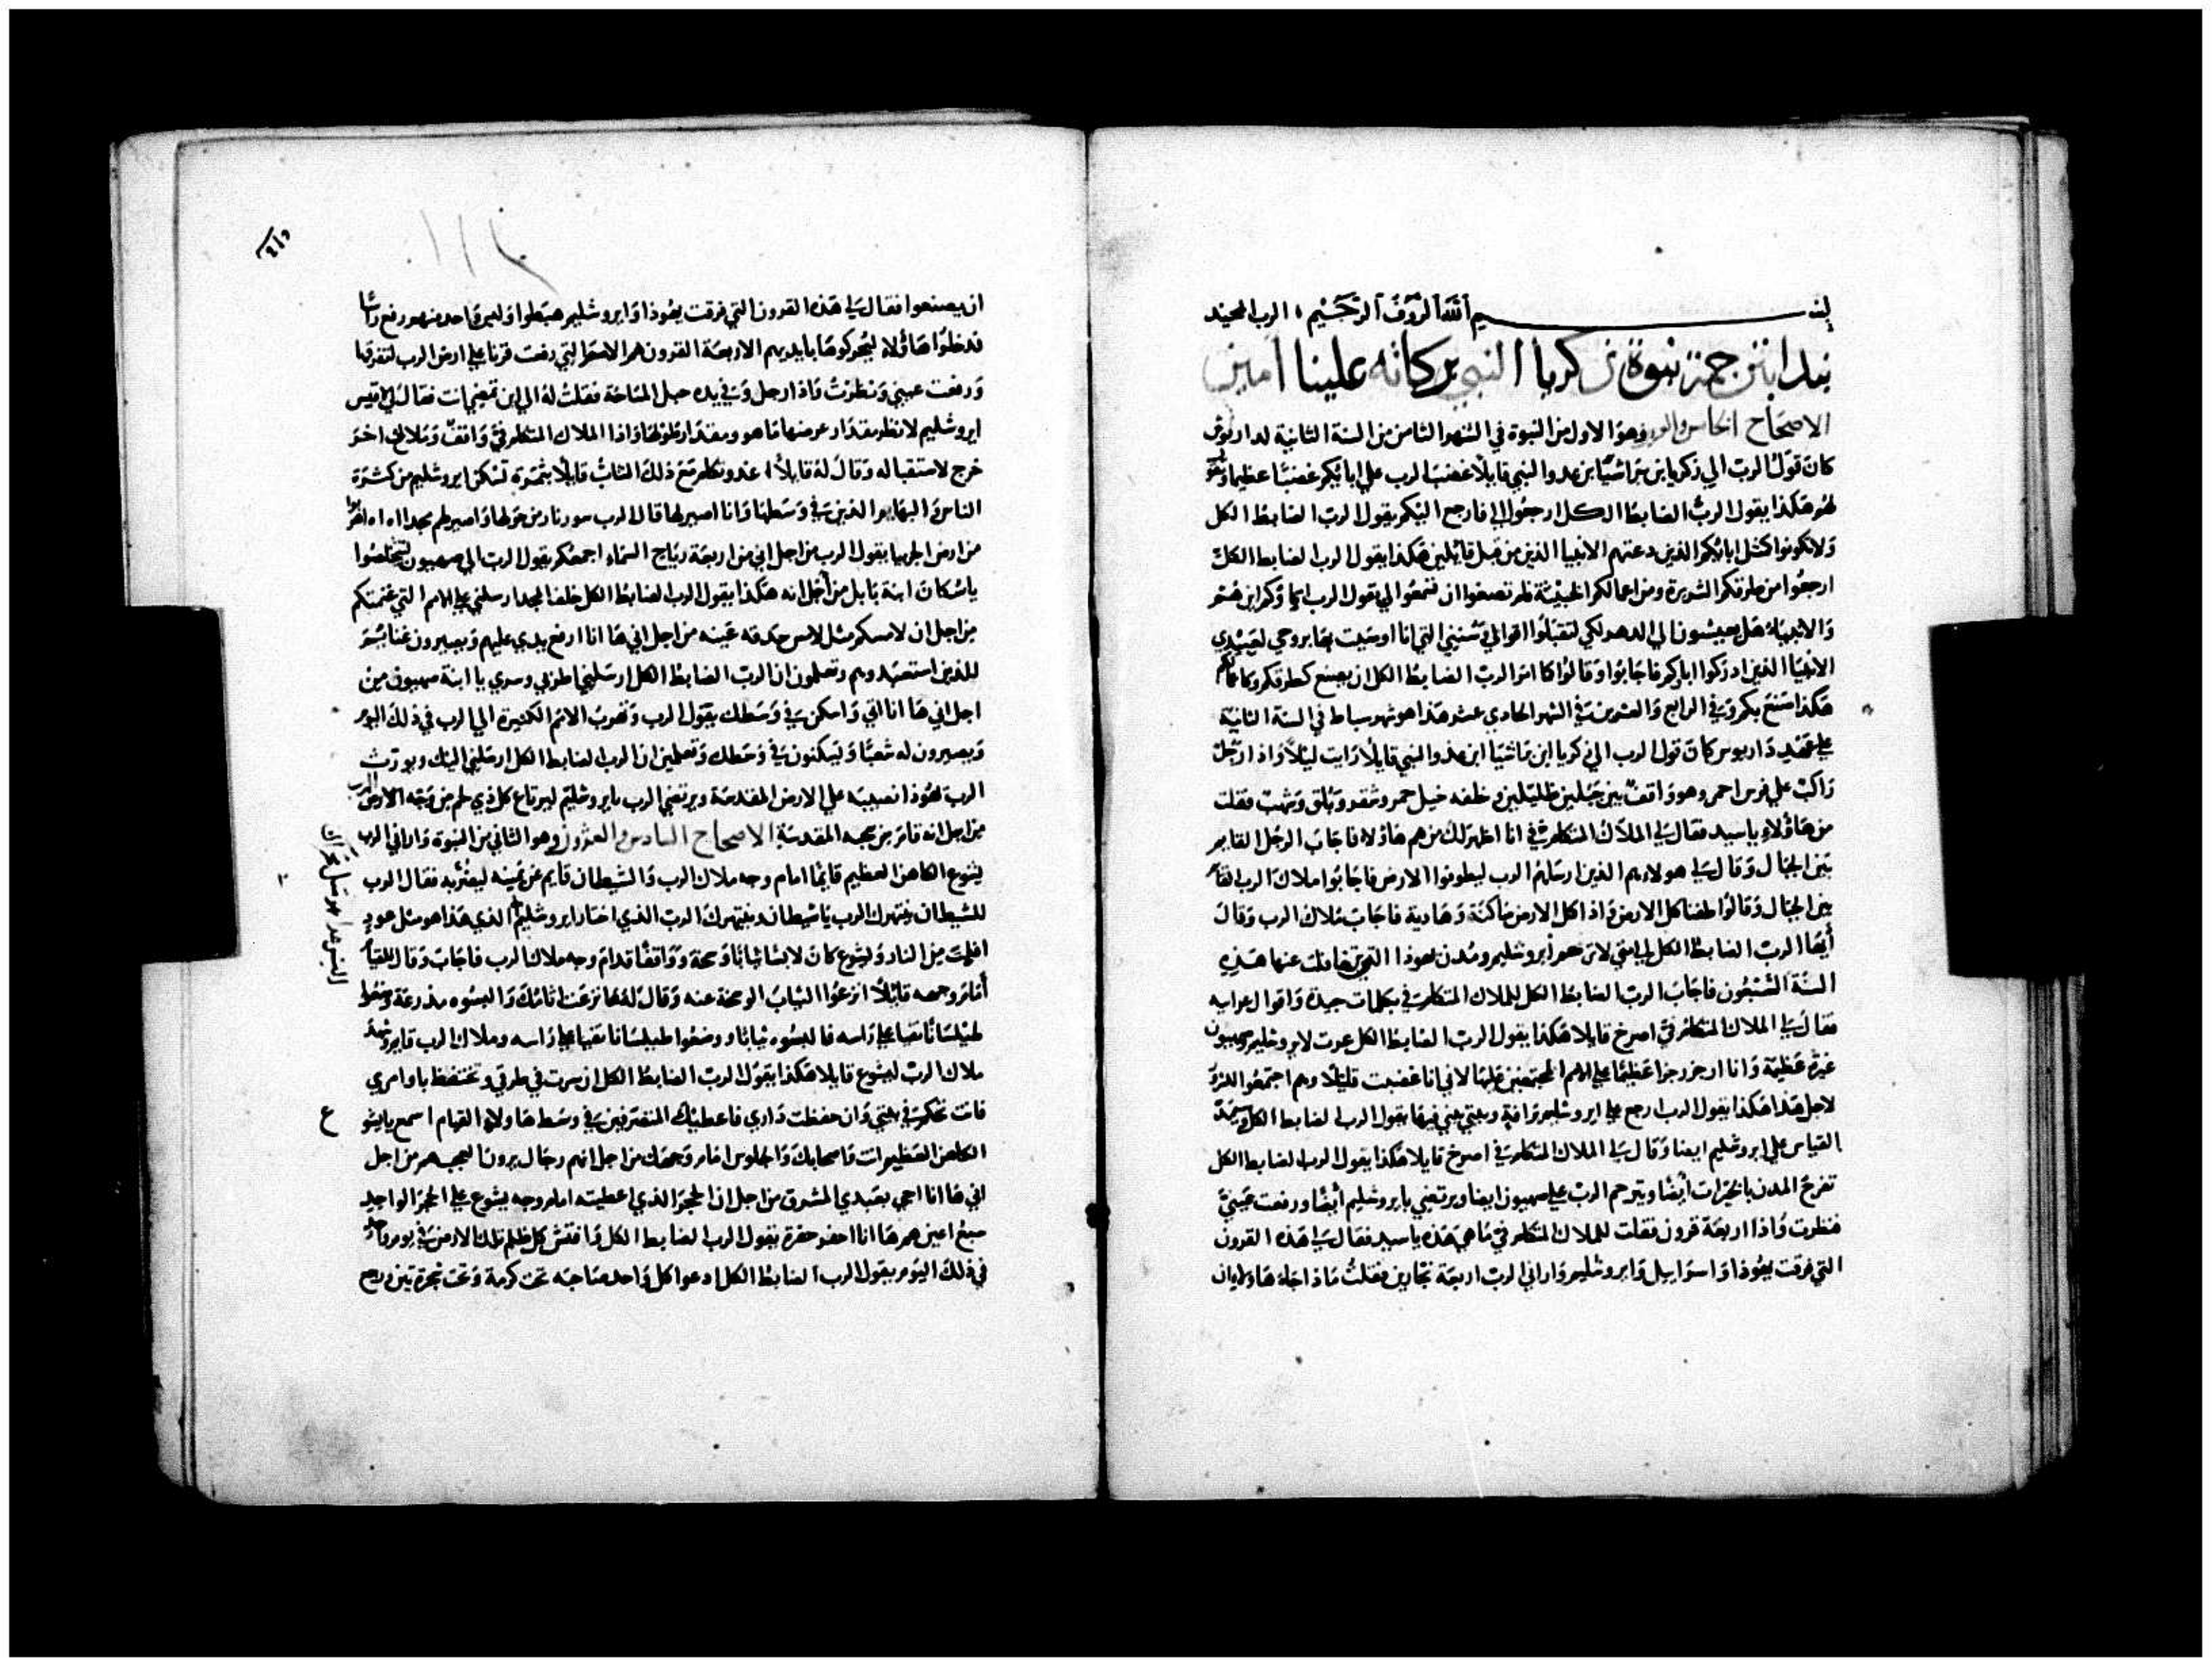 بسم الله الروف الرحيم الرب المجيد
نبدا بترجمة نبوة زكريا النبي بركاته علينا امين
الاصحاح الخامس وهو الاول من النبوة في الشهر الثامن من السنة الثانية لداريوش
كان قول الرب الي زكريا ابن براشيا ابن عدوا النبي قايلا غضب الرب علي ابايكم غضبا عظيما
لهم هكذا يقول الرب الضابط الكل ارجعوا الي فارجع اليكم يقول الرب الضابط الكل
ولا تكونوا كمثل ابايكم الذين دعتهم الانبيا الذين من قبل قائلين هكذا يقول الرب الضابط الكل
ارجعوا من طرقكم الشريرة ومن اعمالكم الخبيثة فلم تصغوا ان تسمعوا الي يقول الرب اباوكم اين هم
والانبياء هل يعيشون الي الدهر لكي لتقبلوا اقوالي وسنني التي انا اوصيت بها بروحي لعبيدي
الانبيا الذين ادركوا اباوكم فاجابوا وقالوا كما امر الرب الضابط الكل ان يصنع كطرقكم
هكذا صنع بكم وفي الرابع والعشرين في الشهر الحادي عشر هذا هو شهر سباط في السنة الثانية
علي عهد داريوس كان قول الرب الي زكريا ابن براشيا ابن عدوا النبي قايلا رايت ليلا واذا رجل
راكب علي فرس احمر وهو واقف بين جبلين ظليلين وخلفه خيل حمر وشقر وبلق وشهب فقلت
من هاولاء ياسيد فقال لي الملاك المتكلم في انا اظهر لك من هم هاولاء فاجاب الرجل القايم
بين الجبال وقال لي هولاء هم الذين ارسلهم الرب ليطوفوا الارض فاجابوا ملاك الرب
بين الجبال وقالوا طفنا كل الارض واذا كل الارض ساكنة وهادية فاجاب ملاك الرب وقال
أيها الرب الضابط الكل الي متي لا ترحم أيروشليم ومدن يهوذا التي عنها هذه
السنة السبعون فاجاب الرب الضابط الكل للملاك المتكلم في بكلمات جيدة واقوال
فقال لي الملاك المتكلم في اصرخ قايلا هكذا يقول الرب الضابط الكل غرت لايروشليم وصهيون
غيرة عظيمة وانا ارجز رجزا عظيما علي الامم المجتمعين عليها لاني انا غضبت قليلا وهم اجتمعوا
لاجل هذا هكذا يقول الرب ارجع علي ايروشليم برافة وبيتي يبني فيها يقول الرب الضابط الكل
القياس علي ايروشليم ايضا وقال لي الملاك المتكلم في اصرخ قايلا هكذا يقول الرب الضابط الكل
تفرح المدن بالخيرات أيضا ويترحم الرب علي صهيون ايضا ويرتضي بايروشليم أيضا ورفعت عيني
فنظرت واذا اربعة قرون فقلت للملاك المتكلم في ما هي هذه ياسيد فقال لي هذه القرون
التي فرقت يهوذا واسراييل وايروشليم واراني الرب اربعة نجارين فقلت ماذا جاء هاولاء ان
ان يصنعوا فقال لي هذه القرون التي فرقت يهوذا وايروشليم هبطوا وليس واحد منهم رفع راسا
فدخلوا هاؤلاء ليحركوها بايديهم الاربعة القرون هم الامم التي رفعت قرنا علي ارض الرب لتفرقها
ورفعت عيني ونظرت واذا رجل وفي يده حبل المساحة فقلت له الي اين تمضي انت فقال لي اقيس
ايروشليم لانظر مقدار عرضها ما هو ومقدار طولها واذا الملاك المتكلم في واقف وملاك اخر
خرج لاستقباله وقال له قايلا اعدو تكلم مع ذلك الشاب قايلا بثمرة تسكن ايروشليم من كثرة
الناس والبهايم الذين في وسطها وانا اصير لها قال الرب سور نار من حولها واصير لهم مجدا
من ارض الجربيا يقول الرب من اجل اني من اربعة رياح السماء اجمعكم يقول الرب الي صهيون لتخلصوا
ياسكان ابنة بابل من أجل انه هكذا يقول الرب الضابط الكل خلف المجد ارسلني علي الامم التي غنمتكم
من اجل ان لامسكم مثل لامس حدقه عينه من اجل اني ها انا ارفع يدي عليهم ويصيرون غنايم
للذين استعبدوهم وتعلمون ان الرب الضابط الكل ارسلني اطربي وسري يا ابنة صهيون من
اجل اني ها انا اتي واسكن في وسطك يقول الرب وتهرب الامم الكثيرة الي الرب في ذلك اليوم
ويصيرون له شعبا ويسكنون في وسطك وتعلمين ان الرب الضابط الكل ارسلني اليك ويورث
الرب يهوذا نصيبه علي الارض المقدسة ويرتضي الرب بايروشليم ليرتاع كل ذي لحم من وجه الرب
من اجل انه قام من سحبه المقدسة الاصحاح السادس والعشرون وهو الثاني من النبوة واراني الرب
يشوع الكاهن العظيم قائما امام وجه ملاك الرب والشيطان قايم عن يمينه ليعثر به فقال الرب
للشيطان ينتهرك الرب ياشيطان وينتهرك الرب الذي اختار ايروشليم الذي هذا هو مثل عود
افلت من النار ويشوع كان لابسا ثيابا وسخة وواقفا قدام وجه ملاك الرب فاجاب وقال للقيام
أمام وجهه قايلا انزعوا الثياب الوسخة عنه وقال له ها نزعت اثامك والبسوه مدرعة وضعوا
طيلسانا نقيا علي راسه فالبسوه ثيابا ووضعوا طيلسانا نقيا علي راسه وملاك الرب قايم وشهد
ملاك الرب ليشوع قايلا هكذا يقول الرب الضابط الكل ان سرت في طرقي وتحتفظ باوامري
فانت تحكم في بيتي وان حفظت داري فاعطيك المتصرفين في وسط هاولاء القيام اسمع يايشوع
الكاهن العظيم انت واصحابك والجلوس امام وجهك من اجل انهم رجال يرون العجب هم من اجل
اني ها انا اجي بعبدي المشرق من اجل ان الحجر الذي اعطيته امام وجه يشوع علي الحجر الواحد
سبع اعين هم ها انا احفر حفرة يقول الرب الضابط الكل وافتش كل ظلم تلك الارض في يوم واحد
في ذلك اليوم يقول الرب الضابط الكل ادعوا كل واحد صاحبه تحت كرمة وتحت شجرة تين
ع